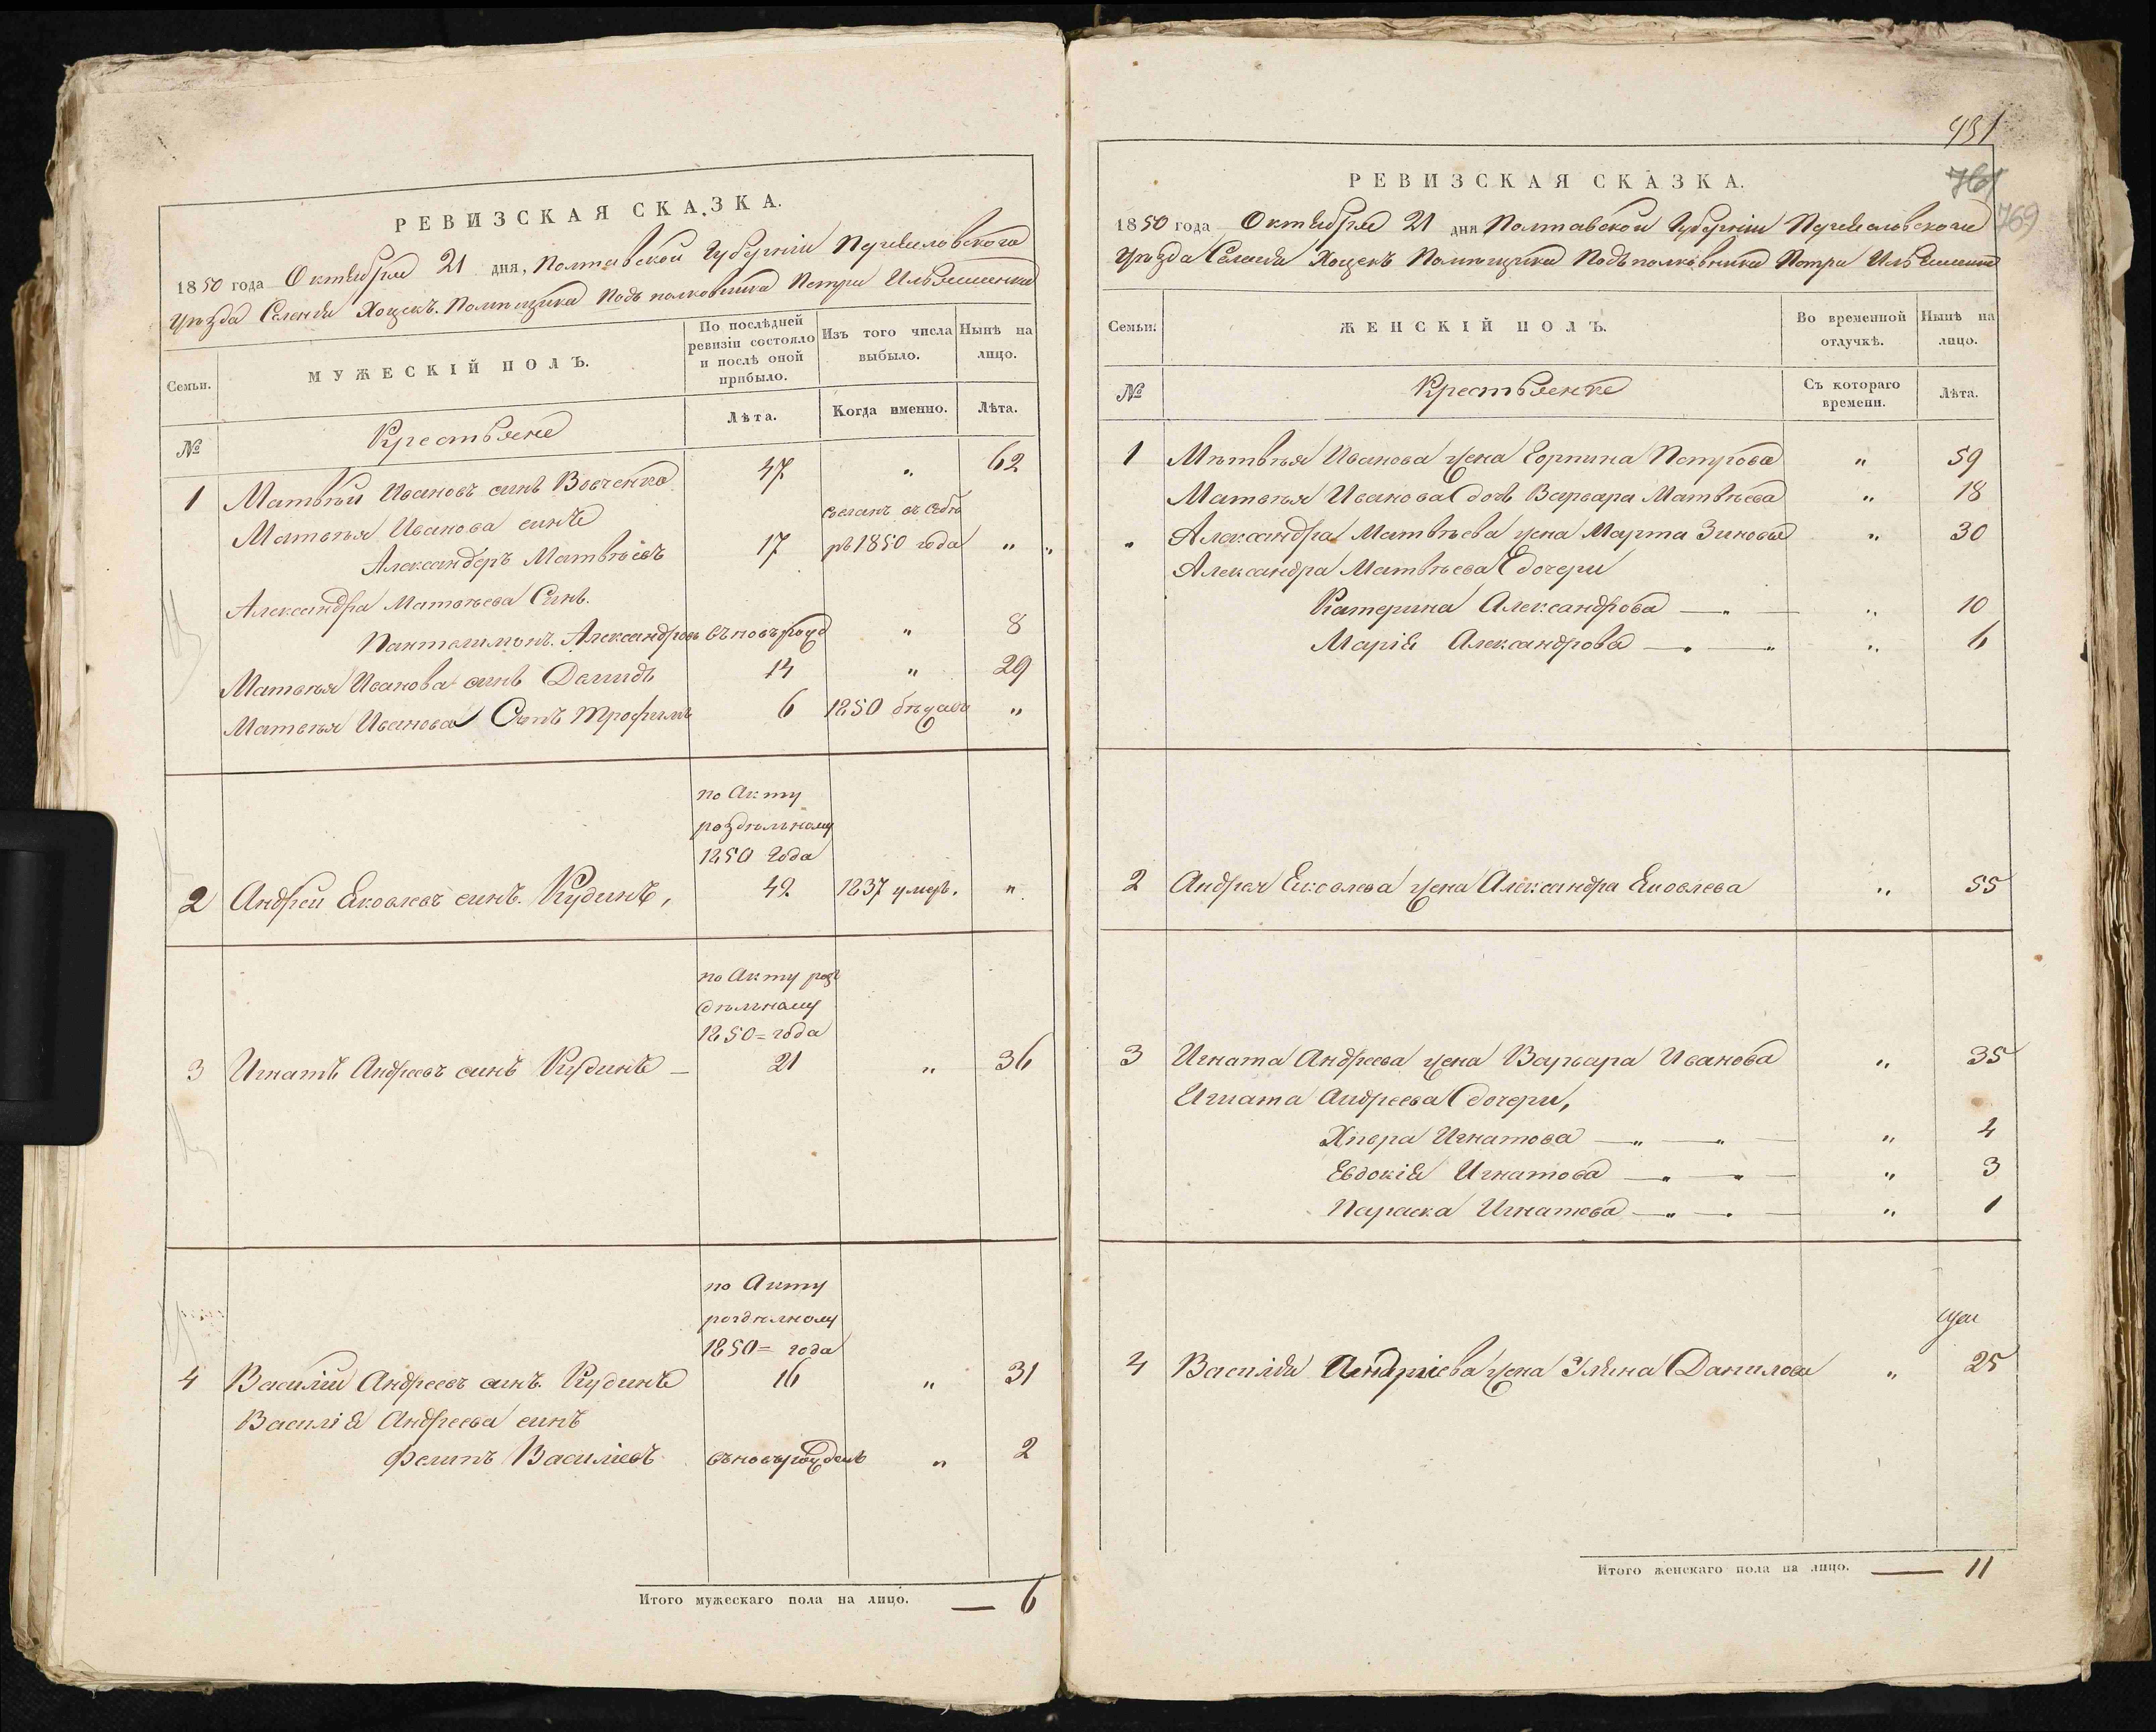 РЕВИЗСКАЯ СКАЗКА.
1850 года Октября 21 дня, Полтавской Губерніи
уѣзда Селенія Хоцекъ. Помѣщика Подполковника Петра Ильяшенка
Семьи.
МУЖЕСКІЙ ПОЛЪ.
По послѣдней ревизіи состояло и послѣ оной прибыло.
Изъ того числа выбыло.
Нынѣ на лицо.
№
Крестьяне
Лѣта.
Когда именно.
Лѣта.
1 Матвѣй Ивановъ синъ Вовченко 47. „ 62
Матвѣя Иванова синъ
Александеръ Матвѣевъ 17 1850 года „
Александра Матвѣева Синъ.
Пантелимонъ. Александровъ въновърожд „ 8
Матвѣя Иванова синъ Демидъ 14 „ 29
Матвѣя Иванова Синъ Трофимъ 6 1850 „
по Акту
роздѣльному
1850 года
2 Андрей Яковлевъ синъ. Кудинъ, 49. 1837 умеръ. „
по Акту роз
дѣльному
1850= года
3 Игнатъ Андреевъ синъ Кудинъ — 21 „ 36
по Акту
роздѣлному
1850= года
4 Василій Андреевъ синъ. Кудинъ 16 „ 31
Василія Андреева синъ
Василіевъ въноврожденъ „ 2
Итого мужескаго пола на лицо. — 6
931
769
РЕВИЗСКАЯ СКАЗКА.
1850 года Октября 21 дня Полтавской Губерніи
уѣзда Селенія Хоцекъ Помѣщика Подполковника Петра Ильяшенка
Семьи.
ЖЕНСКІЙ ПОЛЪ.
Во временной отлучкѣ.
Нынѣ на лицо.
№
Крестьянки
Съ котораго времени.
Лѣта.
1 Матвѣя Иванова жена Горпина Петрова „ 59
Матвѣя Иванова дочь Варвара Матвѣева „ 18
„ Александра Матвѣева жена Марта Зиновы „ 30
Александра Матвѣева дочери
Катерина Александрова — „ — „ 10
Марія Александрова — „ — „ „ 6
2 Андрея Яковлева жена Александра Яковлева „ 55
3 Игната Андреева жена Варвара Иванова „ 35
Игната Андреева дочери,
Хивра Игнатова — „ — „ — „ 4
Евдокія Игнатова — „ — „ — „ 3
Параска Игнатова — „ — „ — „ 1
4 Василія Андріева жена Уляна Данилова „ 25
Итого женскаго пола на лицо. — 11